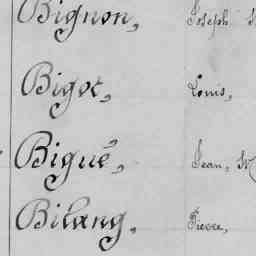 Bignon, Joseph
Bigot, Louis,
Bigué, Jean,
Bilang, Pierre,